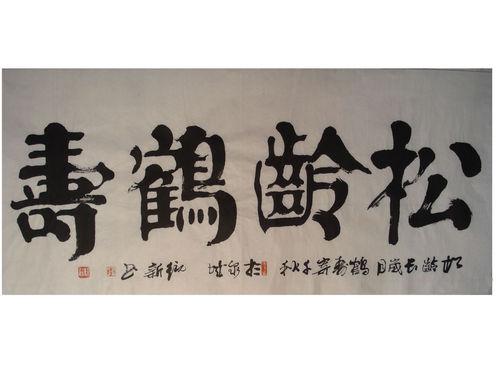 松齡鶴壽
松齡長歲月鶴壽寄千秋 於泉城 新 书